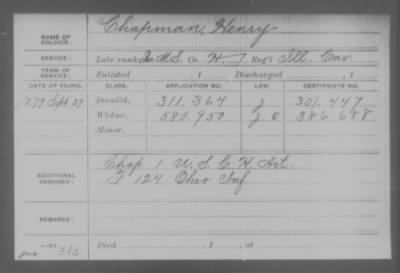 NAME OF SOLDIER: Chapman, Henry
SERVICE: Late rank Q. M. S., Co. H, 7 Reg't Ill. Cav.
TERM OF SERVICE: Enlisted , 1 Discharged , 1
DATE OF FILING. CLASS. APPLICATION NO. LAW. CERTIFICATE NO.
1879 Sept 29 Invalid, 311.364 301.447
Widow, 580.950 386.688
Minor,
Chap 1 U. S. C. H. Art.
ADDITIONAL SERVICES: F 124 Ohio Inf
REMARKS:
Died , 1 , at